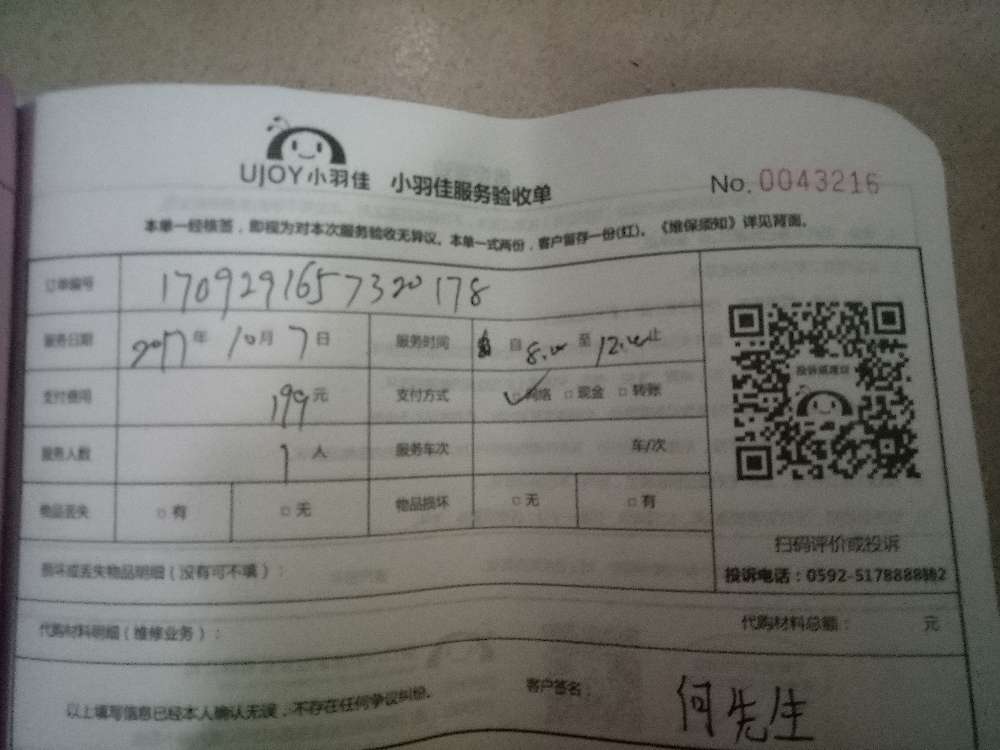 UJOY小羽佳 小羽佳服务验收单 No. 0043216
本单一经核签，即视为对本次服务验收无异议。本单一式两份，客户留存一份(红)。《维保须知》详见背面。
订单编号 1709291657320178
服务日期 2017年10月7日 服务时间 自8:00至12:00止
支付费用 199元 支付方式 ☑网络 □现金 □转账
服务人数 1人 服务车次 车/次
物品丢失 □有 □无 物品损坏 □无 □有
投诉或建议
扫码评价或投诉
损坏或丢失物品明细（没有可不填）：
投诉电话：0592-5178888转2
代购材料明细（维修业务）： 代购材料总额： 元
以上填写信息已经本人确认无误，不存在任何争议纠纷. 客户签名： 何先生